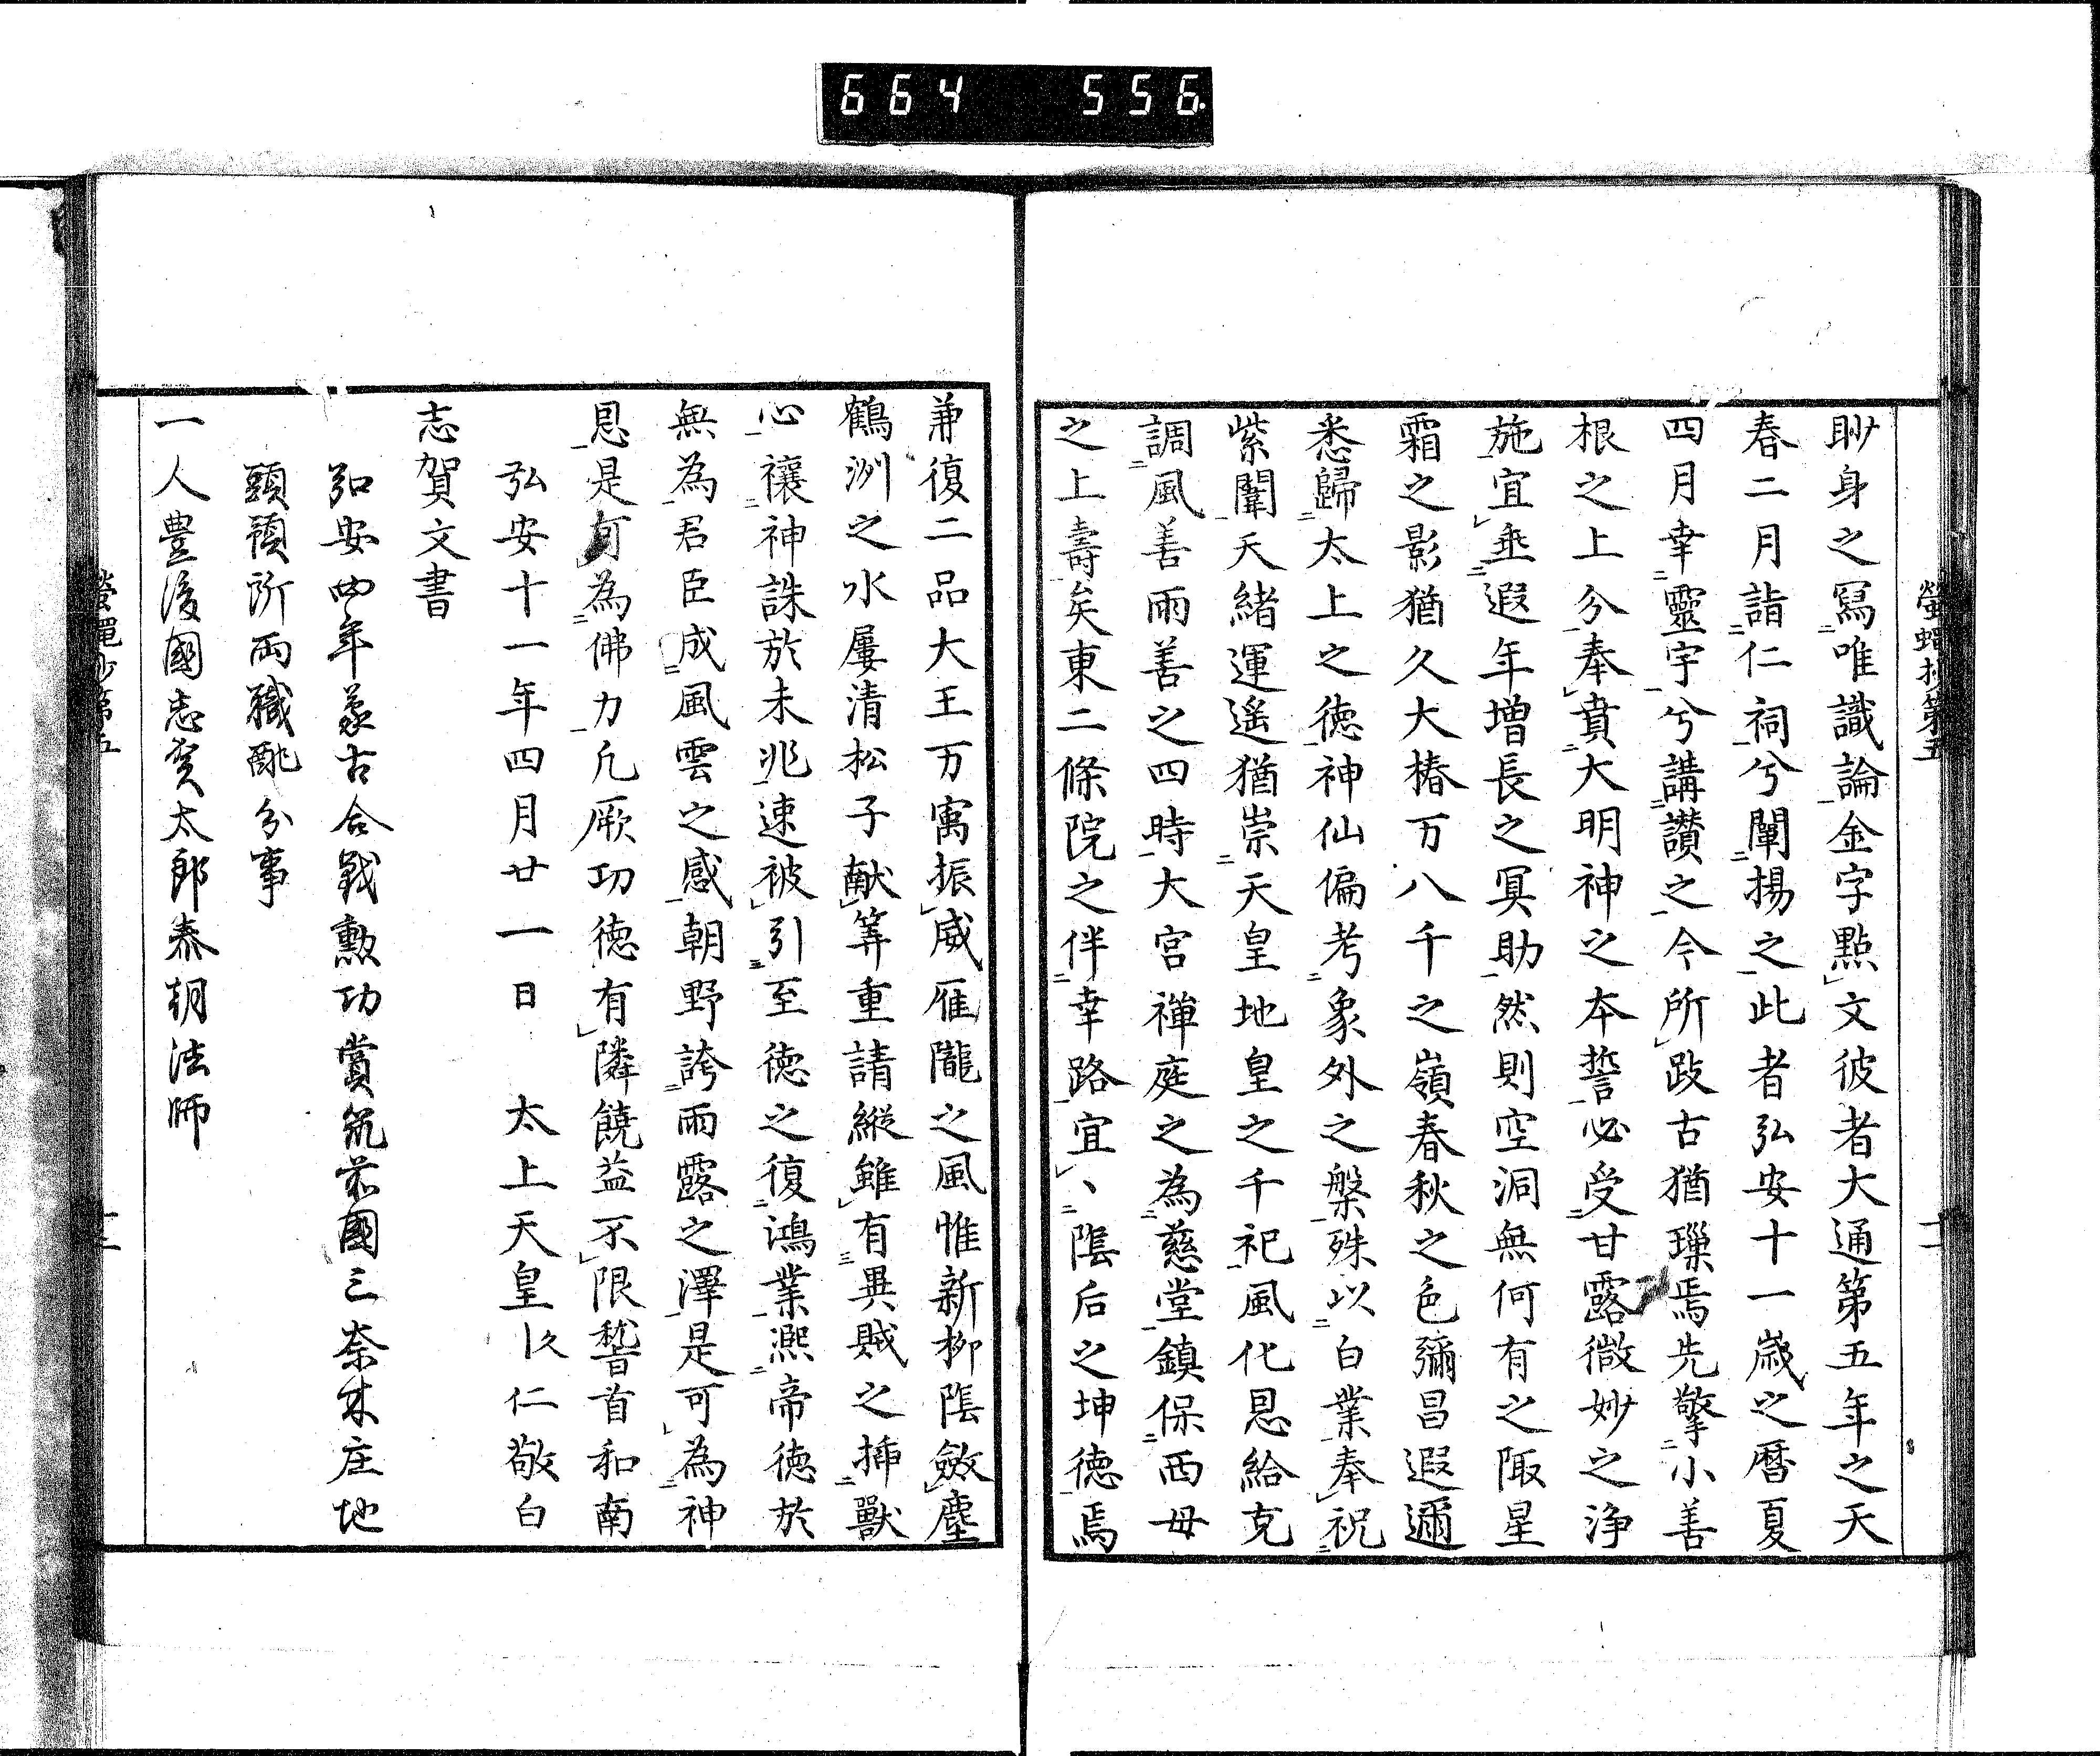 664 556
螢蠅抄第五
十一
眇身之冩唯識論金字點文彼者大通第五年之天
春二月詣仁祠兮闡揚之此者弘安十一歳之暦夏
四月幸靈宇兮講讃之今所跂古猶璅焉先擎小善
根之上分奉賁大明神之本誓必受甘露微妙之浄
施宜垂遐年増長之冥助然則空洞無何有之陬星
霜之影猶久大椿万八千之嶺春秋之色彌昌遐邇
悉歸太上之徳神仙偏考象外之槃殊以白業奉祝
紫闈天緒運遥猶崇天皇地皇之千祀風化恩給克
調風善雨善之四時大宮禅庭之為慈堂鎮保西母
之上壽矣東二條院之伴幸路宜丶陰后之坤徳焉
兼復二品大王万寓振威雁隴之風惟新栁陰斂塵
鶴洲之水屢清松子献筭重請縦雖有異賊之挿獸
心禳神誅於未兆速被引至徳之復鴻業凞帝徳於
無為君臣成風雲之感朝野誇雨露之澤是可為神
恩是可為佛力凢厥功徳有隣饒益不限稽首和南
弘安十一年四月廿一日　太上天皇久仁敬白
志賀文書
弘安四年蒙古合戰勲功賞筑前國三奈木庄地
頭預所両職配分事
一人豊後國志賀太郎泰朝法師
螢蠅抄第五
十二